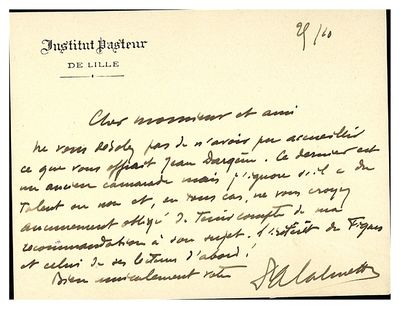 Institut Pasteur
DE LILLE
25/10
Cher monsieur et ami
Ne vous désolez pas de n'avoir pu accueillir
ce que vous offrait Jean Dargène. Ce dernier est
un ancien camarade mais j'ignore s'il a du
talent ou non et, en tous cas, ne vous croyez
aucunement obligé de tenir compte de ma
recommandation à son sujet. L'intérêt de
et celui de ses lecteurs d'abord !
Bien amicalement votre
Dr A Calmette